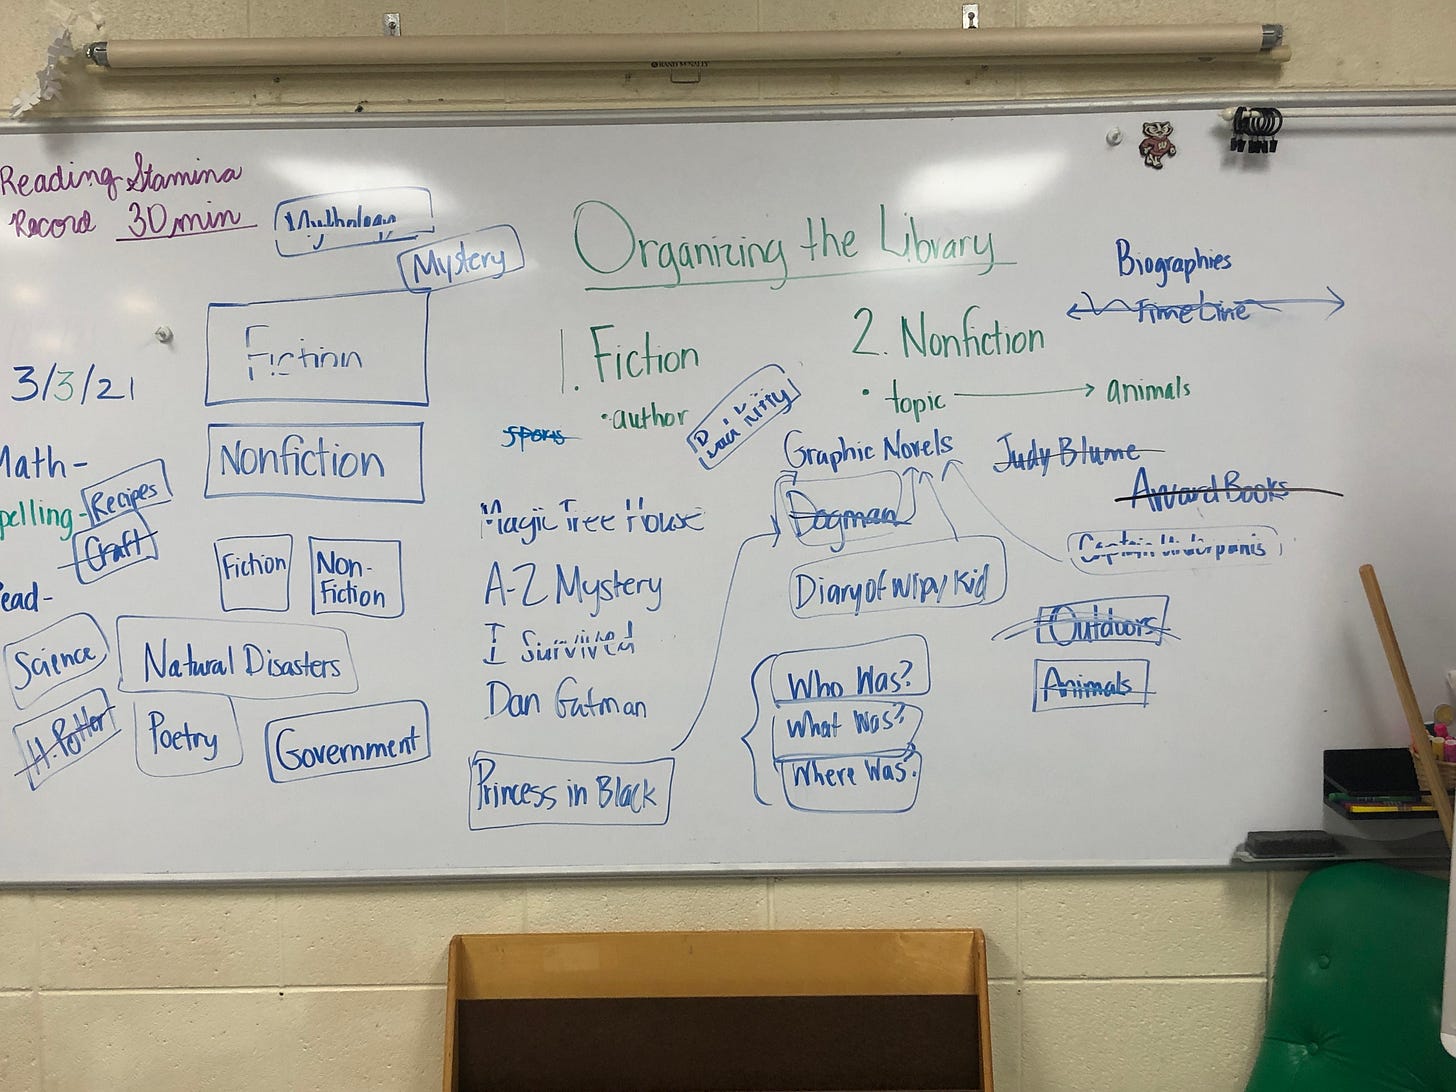 RAND McNALLY
Reading Stamina
Record 30 min
Mythology
Mystery
Organizing the Library
Biographies
Timeline
Fiction
1. Fiction
2. Nonfiction
3/3/21
• author
• topic → animals
Bad Kitty
sports
Nonfiction
Graphic Novels
Judy Blume
Math-
Recipes
Award Books
pelling-
Craft
Magic Tree House
Dogman
Captain Underpants
Fiction
Non-
Fiction
A-Z Mystery
Diary of Wipy Kid
ead-
Outdoors
I Survived
Science
Natural Disasters
Who Was?
Animals
H. Potter
Poetry
Government
Dan Gutman
What Was?
Princess in Black
Where Was?